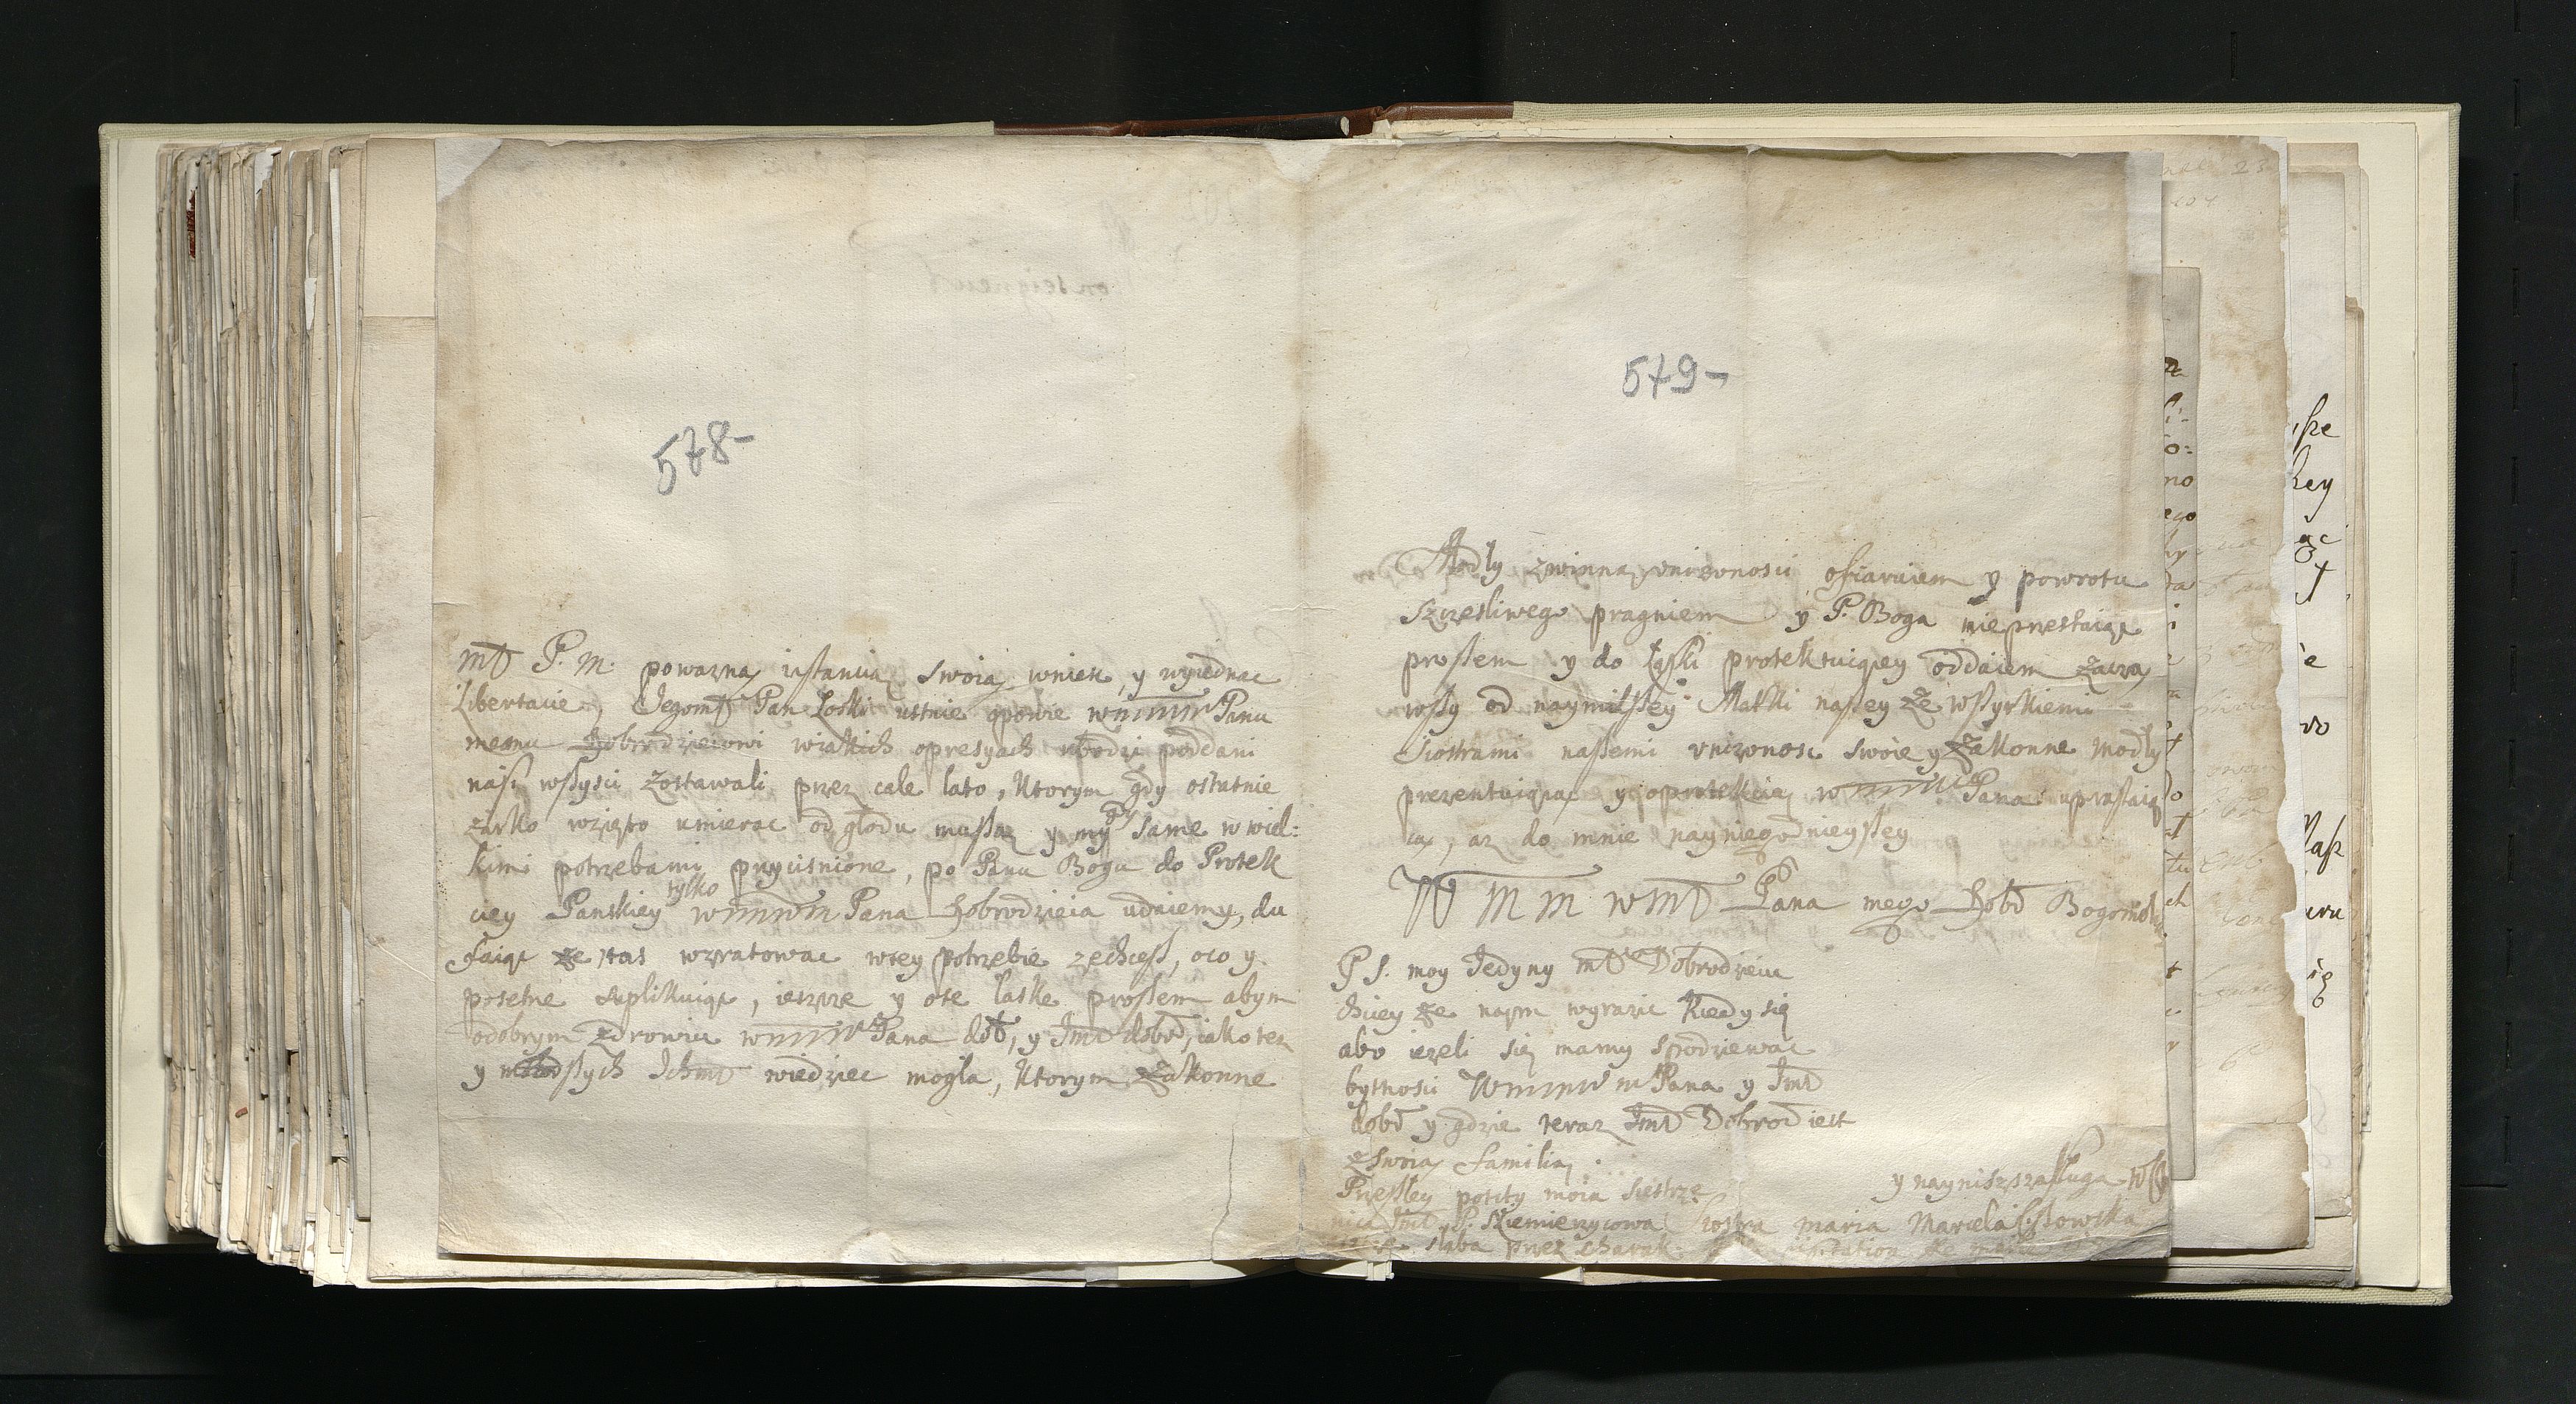 578-
mD P. M. powazną instantią swoią wniesc, y wyiednac
Libertacie, Jegomć Pan Łoski ustnie opowie wmmm Panu
memu Dobrodzieiowi wiakich opresyach ubodzi poddani
nasi wszysci zostawali przez cale lato, ktorym gdy ostatnie
ziarko wzięto umierac od głodu muszą y my same w wiel:
kimi potrzebami przycisnione, po Panu Bogu do Protek
cyey Panskiey tylko wmmm Pana Dobrodzieia udaiemy, du
faiąc ze nas wzratowac wtey potrzebie zechcesz, oco y
pokornie suplikuiąc, ieszcze y ote łaske proszem abym
odobrym zdrowiu wmmm Pana dob, y Jmć dobrod, iako tez
y młodszych Ichmć wiedziec mogła, ktorym zakonne
579-
Modły zwinną unizonosci ofiaruiem y powrotu
szczesliwego pragniem y P. Boga nieprzestaiąc
proszem y do łaski protektuiącey oddaiem zaczą
wszy od naymilszey Matki naszey ze wszyrkiemi
Siostrami naszemi unizonosc swoie y zakonne modły
prezentuiącą y oprotekcią wmmm Pana upraszaią
cą, az do mnie nayniegodnieyszey
W M M wmć Pana mego Dobr Bogomodl
P S. moy Jedyny mć Dobrodzieiu
chciey ze nąm wyrazic kiedy się
abo iezeli się mamy spodziewac
bytnosci Wmmm m Pana y Jmć
dobr y gdzie teraz Jmć Dobrod iest
zswoią familią.
Przeszley poczty moia siestrze
nica Jmć P. Niemierzycowa
słaba przez
y nayniszsza sługa
Siostra Maria Marcela